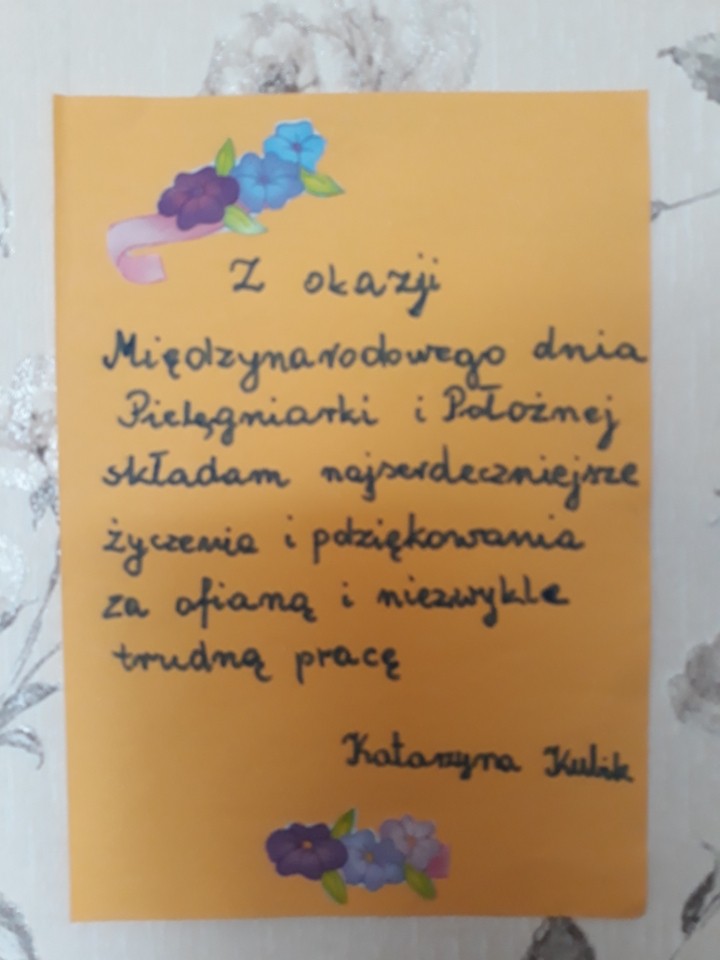 Z okazji
Międzynarodowego dnia
Pielęgniarki i Położnej
składam najserdeczniejsze
życzenia i pdziękowania
za ofianą i niezwykle
trudną pracę
Katarzyna Kubik